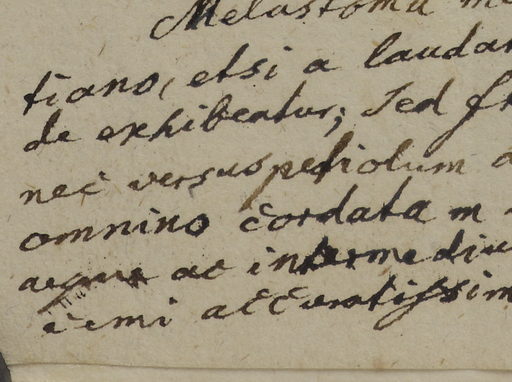 Melastoma me
tiano, etsi a laudat
de exhibeatur; sed fr
nec versus petiolum a
omnino cordatam
aeque ac intermediu
cemi accuratissim